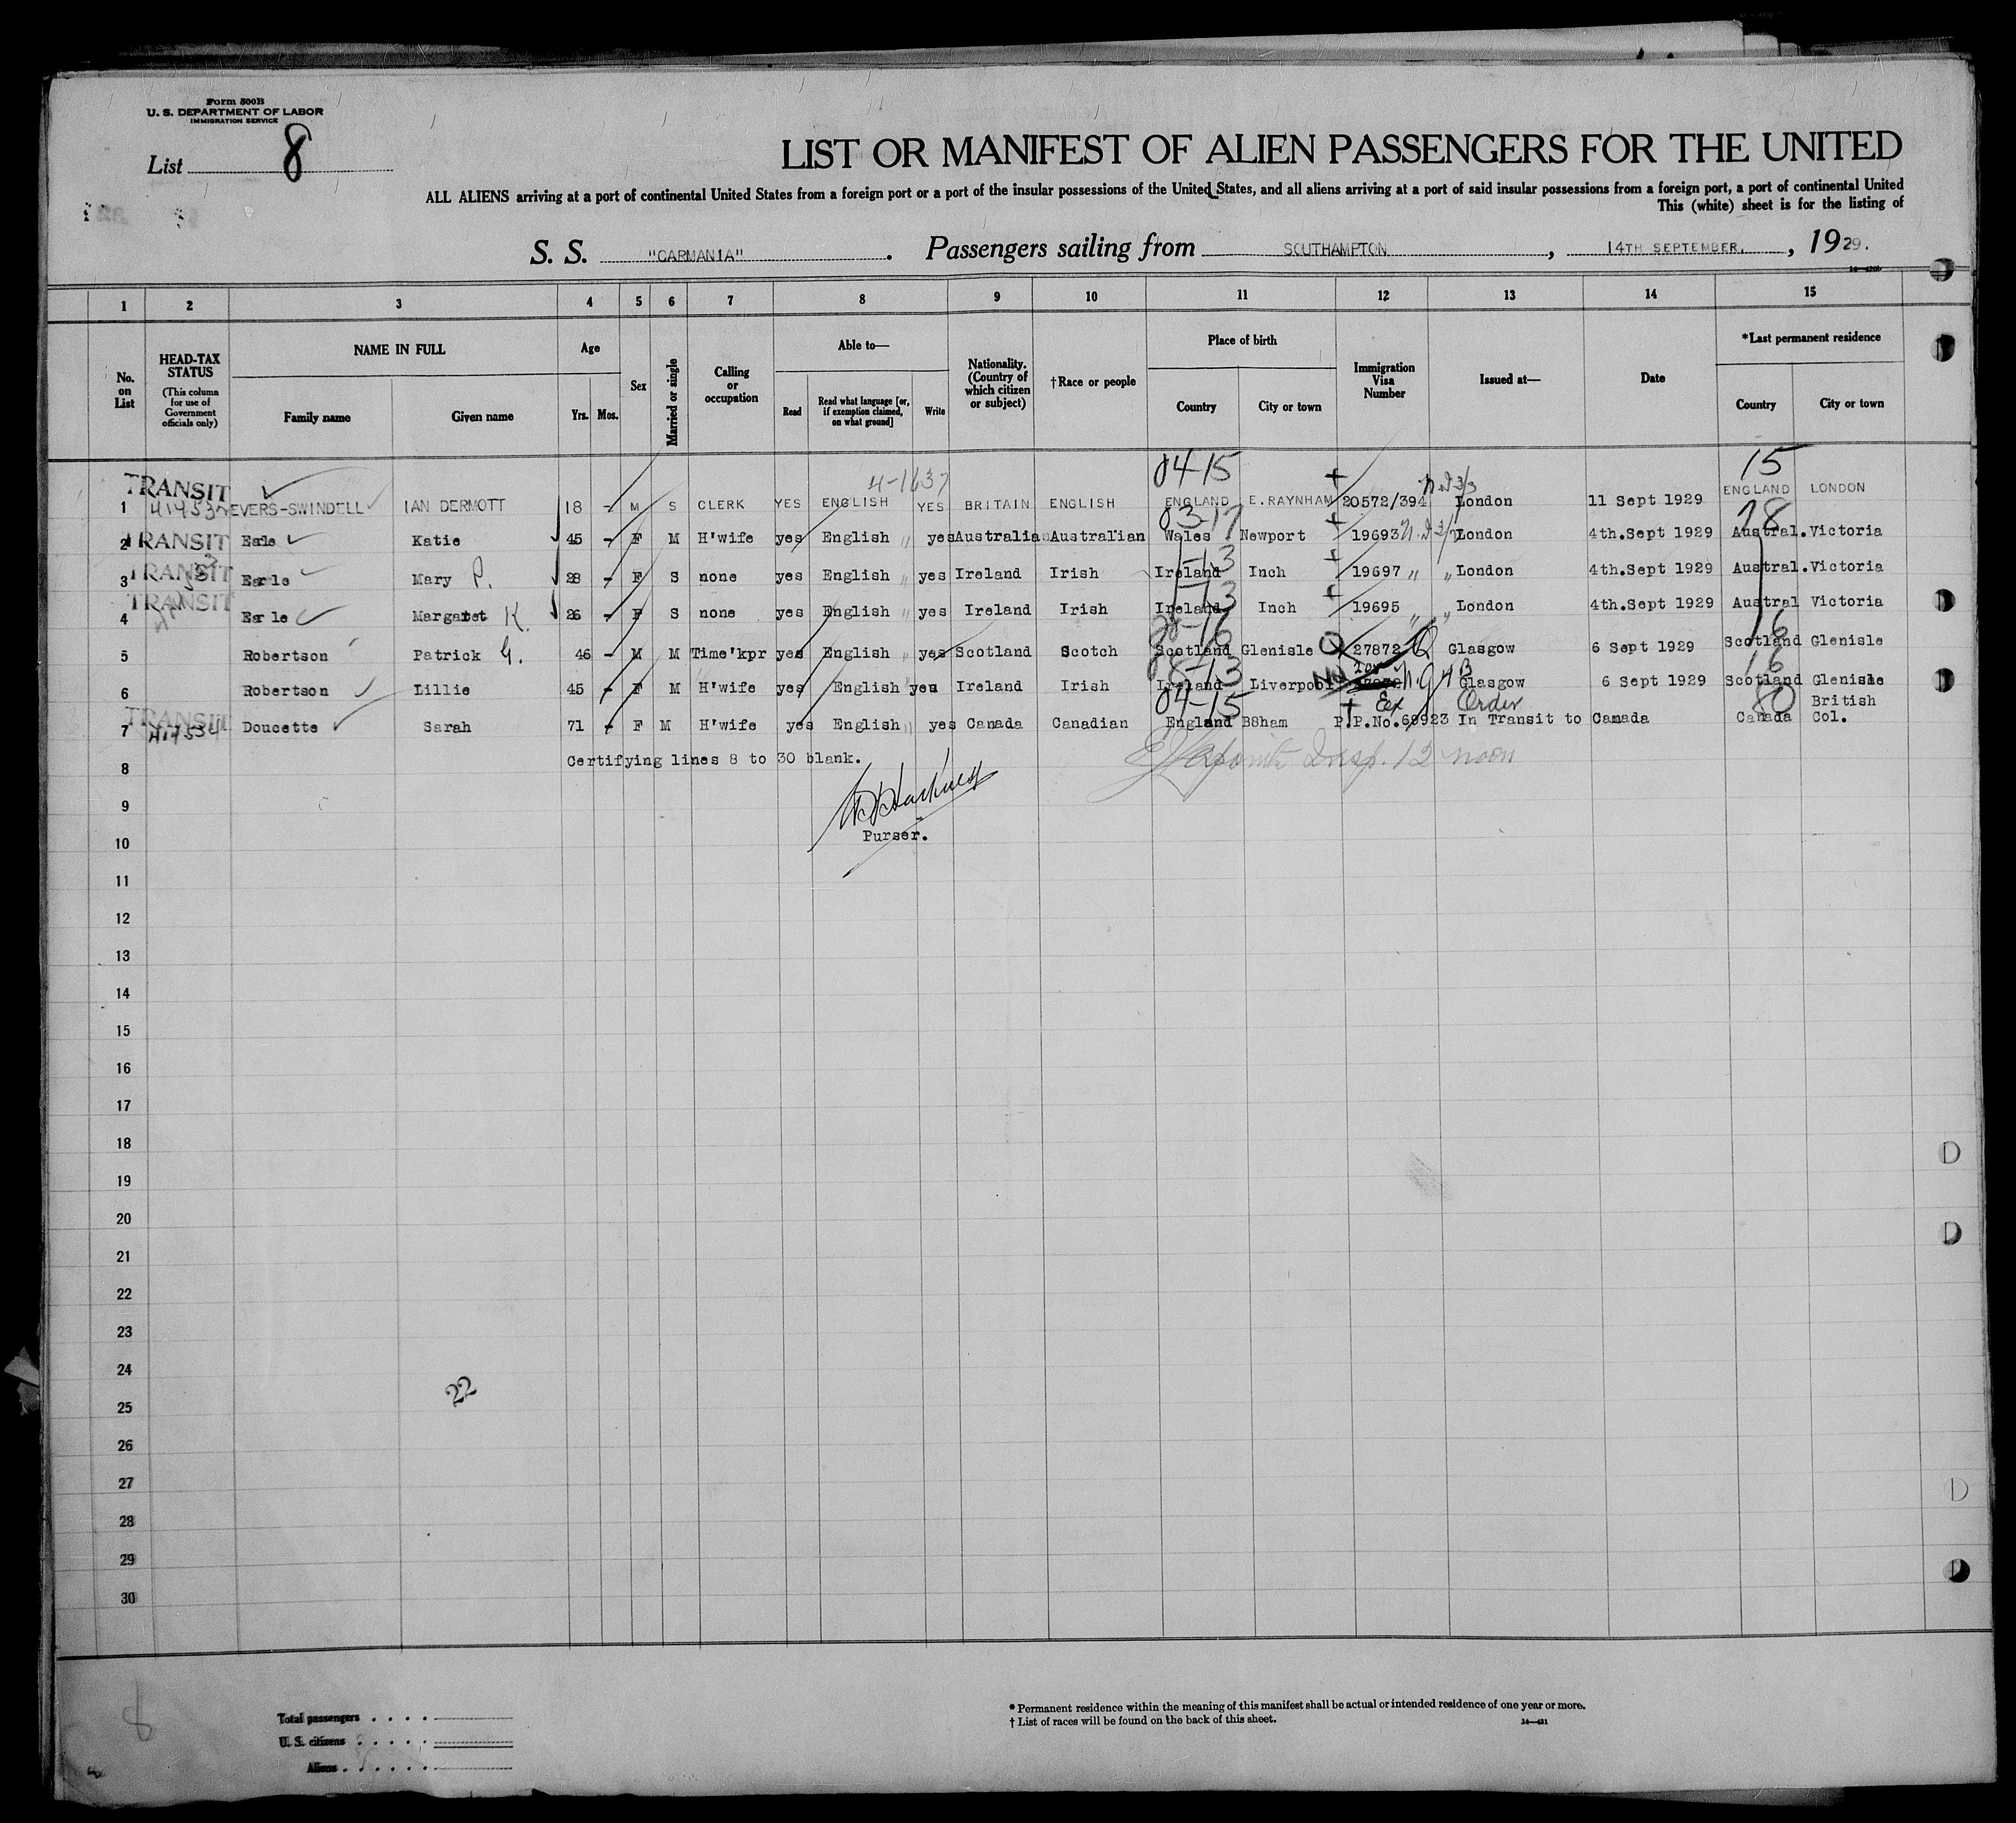 Form 500B
U. S. DEPARTMENT OF LABOR
IMMIGRATION SERVICE
List 8
LIST OR MANIFEST OF ALIEN PASSENGERS FOR THE UNITED
ALL ALIENS arriving at a port of continental United States from a foreign port or a port of the insular possessions of the United States, and all aliens arriving at a port of said insular possessions from a foreign port, a port of continental United
This (white) sheet is for the listing of
S. S. "CARMANIA". Passengers sailing from SOUTHAMPTON, 14TH SEPTEMBER, 1929.
1 2 3 4 5 6 7 8 9 10 11 12 13 14 15
No. on List
HEAD-TAX STATUS
(This column for use of Government officials only)
NAME IN FULL
Family name Given name
Age
Yrs. Mos.
Sex
Married or single
Calling or occupation
Able to—
Read
Read what language [or, if exemption claimed, on what ground]
Write
Nationality. (Country of which citizen or subject)
†Race or people
Place of birth
Country City or town
Immigration Visa Number
Issued at—
Date
*Last permanent residence
Country City or town
4-1637 04-15 15
1 TRANSIT EVERS-SWINDELL IAN DERMOTT 18 - M S CLERK YES ENGLISH YES BRITAIN ENGLISH ENGLAND E.RAYNHAM 20572/394 London 11 Sept 1929 ENGLAND LONDON
03-17 78
2 TRANSIT Earle Katie 45 - F M H'wife yes English yes Australian Australian Wales Newport 19693 London 4th.Sept 1929 Austral. Victoria
3 TRANSIT Earle Mary P. 28 - F S none yes English " yes Ireland Irish Ireland Inch 19697 " " London 4th.Sept 1929 Austral. Victoria
4 TRANSIT Earle Margaret K. 26 - F S none yes English " yes Ireland Irish Ireland Inch 19695 " " London 4th.Sept 1929 Austral Victoria
16
5 Robertson Patrick G. 46 - M M Time'kpr yes English " yes Scotland Scotch Scotland Glenisle 27872 Q Glasgow 6 Sept 1929 Scotland Glenisle
16
6 Robertson Lillie 45 - F M H'wife yes English yes Ireland Irish Ireland Liverpool Glasgow 6 Sept 1929 Scotland Glenisle
04-15 Ex Order 80 British
7 TRANSIT Doucette Sarah 71 - F M H'wife yes English " yes Canada Canadian England B8ham P.P.No.69923 In Transit to Canada Canada Col.
8 Certifying lines 8 to 30 blank.
Insp. 12 noon
9
Purser.
10
11
12
13
14
15
16
17
18
19
20
21
22
23
24
22
25
26
27
28
29
30
8
Total passengers
U. S. citizens
Aliens
* Permanent residence within the meaning of this manifest shall be actual or intended residence of one year or more.
† List of races will be found on the back of this sheet.
14—431